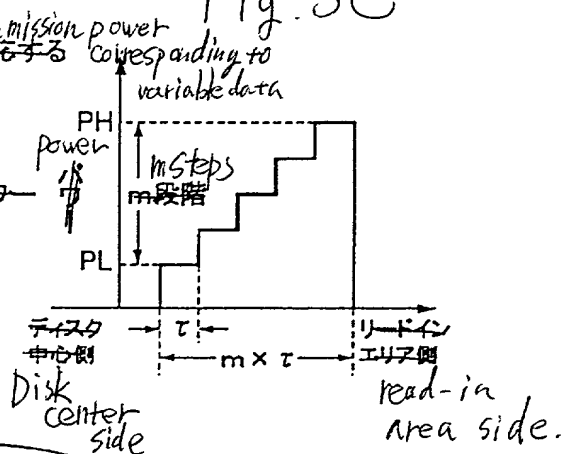 Fig. 3C
mission power
応する corresponding to
variable data
PH
power
m steps
m段階
PL
ディスク
中心側
τ
m × τ
リードイン
エリア側
Disk
center
side
read-in
area side.